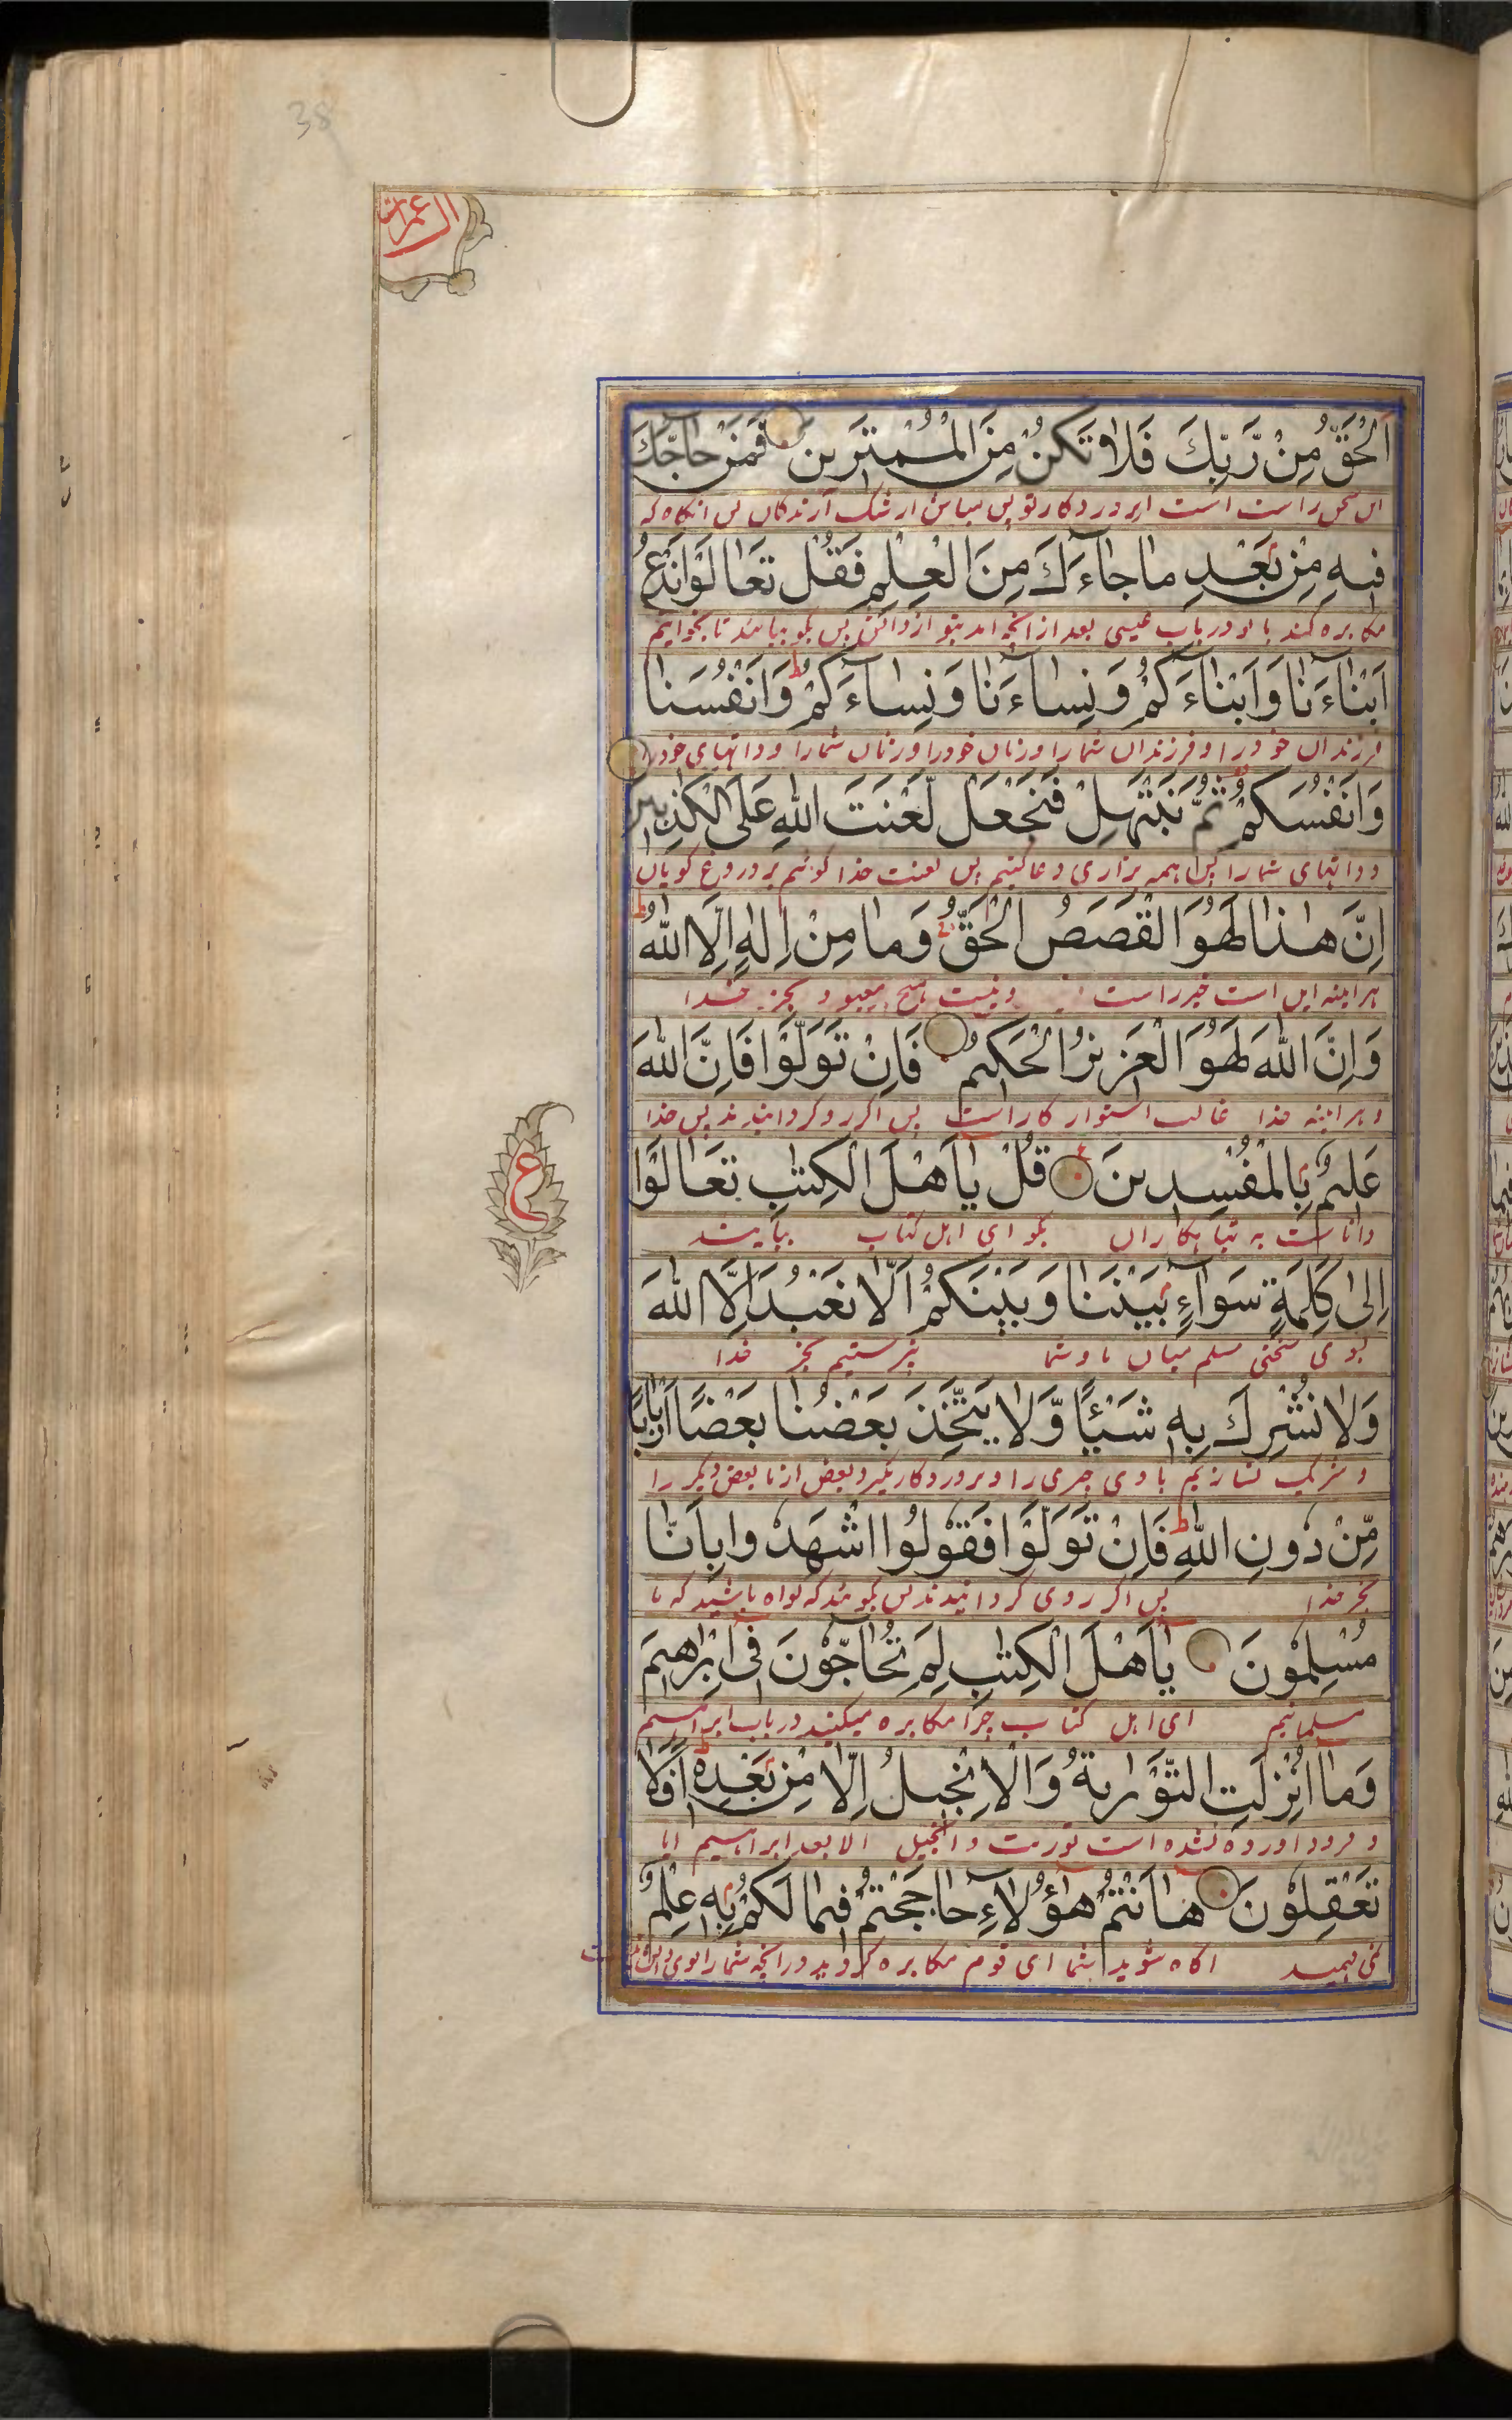 38
ال عمران
اَلْحَقُّ مِنْ رَّبِّكَ فَلَا تَكُنْ مِنَ الْمُمْتَرِينَ فَمَنْ حَاجَّكَ
این سخن راست است از پروردگار تو پس مباش از شک آرندگان پس آنگاه که
فِيهِ مِنْ بَعْدِ مَا جَاءَكَ مِنَ الْعِلْمِ فَقُلْ تَعَالَوْا نَدْعُ
مکابره کند با تو در باب عیسی بعد از آنچه آمد بتو از دانش پس بگو بیائید تا بخوانیم
اَبْنَاءَنَا وَاَبْنَاءَكُمْ وَنِسَاءَنَا وَنِسَاءَكُمْ وَاَنْفُسَنَا
فرزندان خود را و فرزندان شما را و زنان خود را و زنان شما را و ذاتهای خود را
وَاَنْفُسَكُمْ ثُمَّ نَبْتَهِلْ فَنَجْعَلْ لَّعْنَتَ اللّٰهِ عَلَى الْكٰذِبِينَ
و ذاتهای شما را پس همه بزاری دعا کنیم پس لعنت خدا گوئیم بر دروغ گویان
اِنَّ هٰذَا لَهُوَ الْقَصَصُ الْحَقُّ وَمَا مِنْ اِلٰهٍ اِلَّا اللّٰهُ
هرآینه این است خبر راست و نیست هیچ معبود بجز خدا
وَاِنَّ اللّٰهَ لَهُوَ الْعَزِيزُ الْحَكِيمُ فَاِنْ تَوَلَّوْا فَاِنَّ اللّٰهَ
و هرآینه خدا غالب استوار کار است پس اگر رو گردانیدند پس خدا
عَلِيمٌ بِالْمُفْسِدِينَ قُلْ يَا اَهْلَ الْكِتٰبِ تَعَالَوْا
دانا ست به تباهکاران بگو ای اهل کتاب بیایند
ع
اِلٰى كَلِمَةٍ سَوَاءٍ بَيْنَنَا وَبَيْنَكُمْ اَلَّا نَعْبُدَ اِلَّا اللّٰهَ
بسوی سخنی مسلم میان ما و شما نپرستیم بجز خدا
وَلَا نُشْرِكَ بِهِ شَيْئًا وَّلَا يَتَّخِذَ بَعْضُنَا بَعْضًا اَرْبَابًا
و شریک نسازیم با وی چیزی را و پروردگار نگیرد بعض از ما بعض دیگر را
مِّنْ دُونِ اللّٰهِ فَاِنْ تَوَلَّوْا فَقُولُوا اشْهَدُوا بِاَنَّا
بجز خدا پس اگر روی گردانیدند پس بگوئید که گواه باشید که ما
مُسْلِمُونَ يَا اَهْلَ الْكِتٰبِ لِمَ تُحَاجُّونَ فِى اِبْرٰهِيمَ
مسلمانیم ای اهل کتاب چرا مکابره میکنید در باب ابراهیم
وَمَا اُنْزِلَتِ التَّوْرٰيةُ وَالْاِنْجِيلُ اِلَّا مِنْ بَعْدِهِ اَفَلَا
و فرود اورده نشده است توریت و انجیل الا بعد ابراهیم ایا
تَعْقِلُونَ هَا اَنْتُمْ هٰؤُلَاءِ حَاجَجْتُمْ فِيمَا لَكُمْ بِهِ عِلْمٌ
نمی فهمید اگاه شوید شما ای قوم مکابره کردید در آنچه شما را